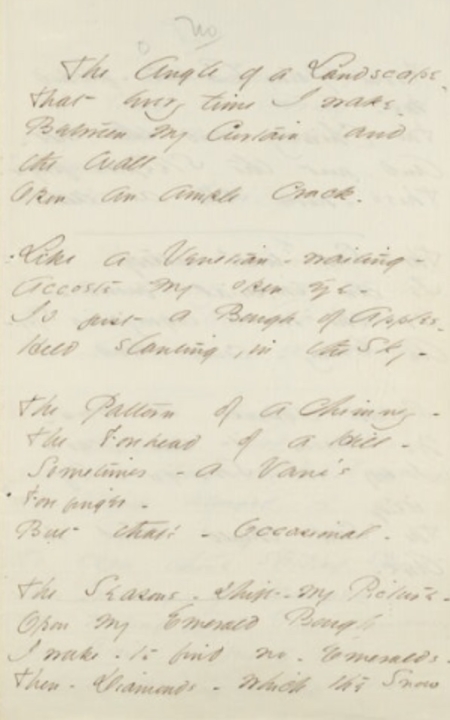 No
The Angle of a Landscape.
That every time I wake.
Between my Curtain and
the Wall
Opon an ample Crack.
Like a Venetian - waiting -
Accosts my open eye.
Is just a Bough of Apples.
Held slanting, in the Sky -
The Pattern of a Chimney -
The Forehead of a Hill -
Sometimes - a Vane's
Forefinger -
But that's - Occasional -
The Seasons - shift - my Picture -
Opon my Emerald Bough
I wake - to find no - Emeralds -
Then - Diamonds - which the Snow